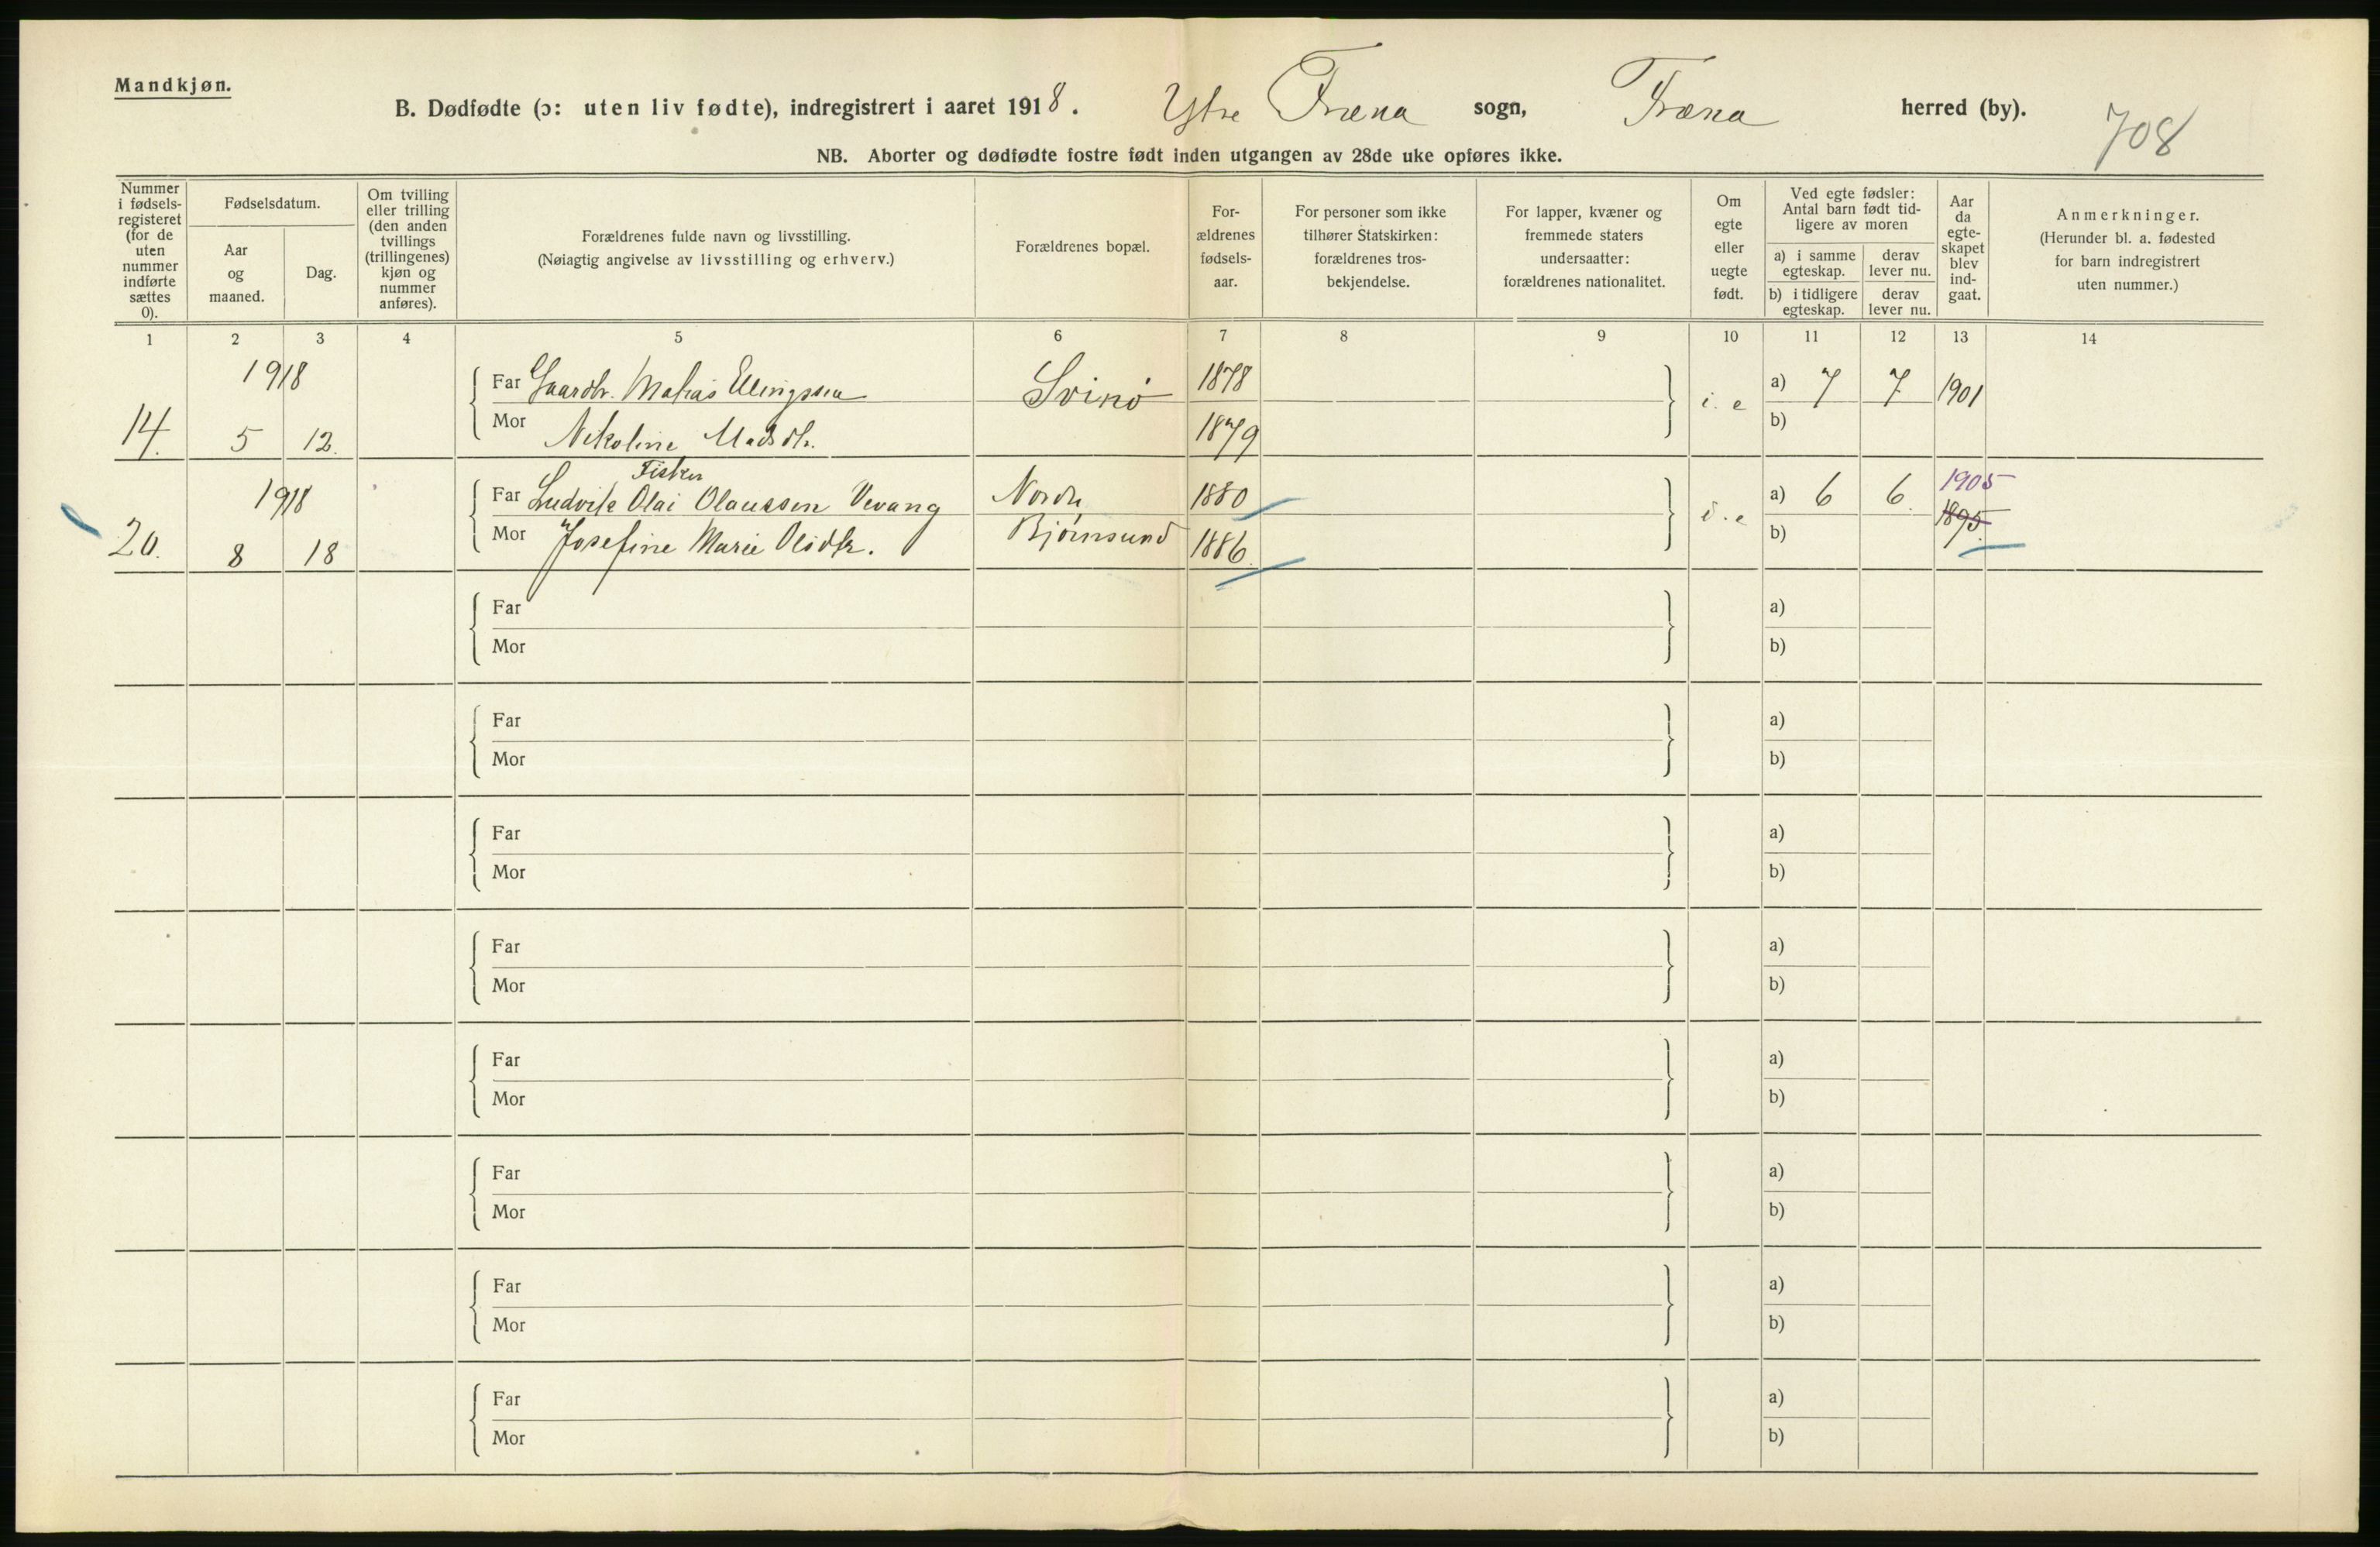 Mandkjøn.
B. Dødfødte (ɔ: uten liv fødte), indregistrert i aaret 1918. Ytre Fræna sogn, Fræna herred (by).
708
NB. Aborter og dødfødte fostre født inden utgangen av 28de uke opføres ikke.
Nummer i fødsels-registeret (for de uten nummer indførte sættes 0).
Fødselsdatum.
Aar og maaned.
Dag.
Om tvilling eller trilling (den anden tvillings (trillingenes) kjøn og nummer anføres).
Forældrenes fulde navn og livsstilling.
(Nøiagtig angivelse av livsstilling og erhverv.)
Forældrenes bopæl.
For-ældrenes fødsels-aar.
For personer som ikke tilhører Statskirken: forældrenes tros-bekjendelse.
For lapper, kvæner og fremmede staters undersaatter: forældrenes nationalitet.
Om egte eller uegte født.
Ved egte fødsler: Antal barn født tid-ligere av moren
a) i samme egteskap.
derav lever nu.
b) i tidligere egteskap.
derav lever nu.
Aar da egte-skapet blev ind-gaat.
Anmerkninger.
(Herunder bl. a. fødested for barn indregistrert uten nummer.)
1 2 3 4 5 6 7 8 9 10 11 12 13 14
1918
Far Gaardbr. Mathias Ellingssen Svinö 1878 i. e a) 7 7 1901
14. 5 12. Mor Nikoline Madsdtr. 1879 b)
1918
Fisker
Far Ludvik Olai Olaussen Vevang Nordre 1880 i. e a) 6 6. 1905
20. 8 18 Mor Josefine Marie Olsdtr. Bjørnsund 1886. b) 1895.
Far a)
Mor b)
Far a)
Mor b)
Far a)
Mor b)
Far a)
Mor b)
Far a)
Mor b)
Far a)
Mor b)
Far a)
Mor b)
Far a)
Mor b)